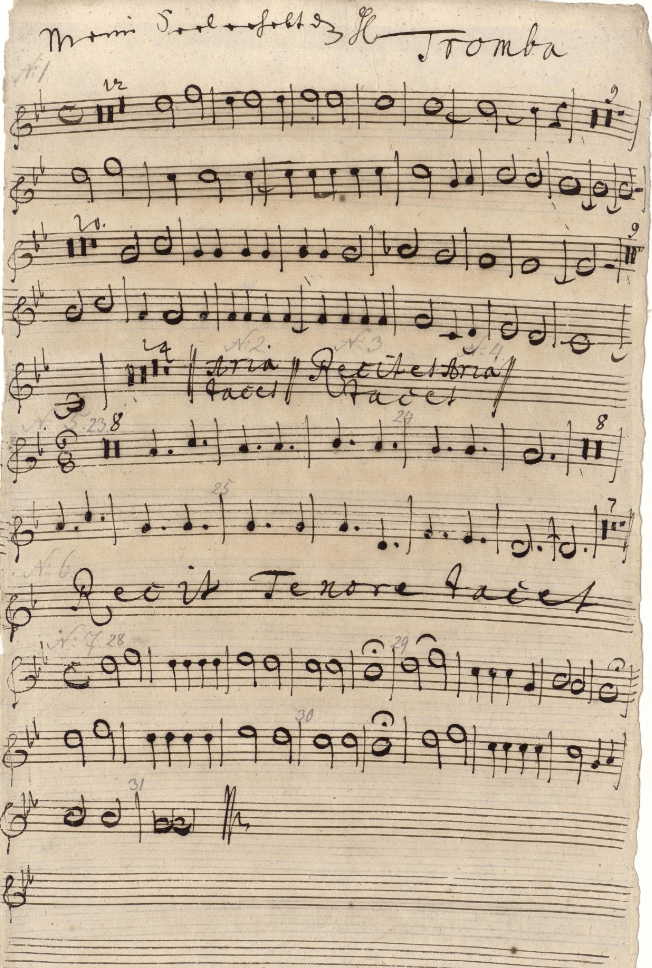 Meine Seel erhebt d H Tromba
N. 1
12 9
20. 2
14
N. 2 N. 3 N. 4
Aria Recitet Aria
tacet tacet
N. 5. 23 8 24 8
25 7
N. 6
Recit Tenore tacet
N. 7 28 29
30
31